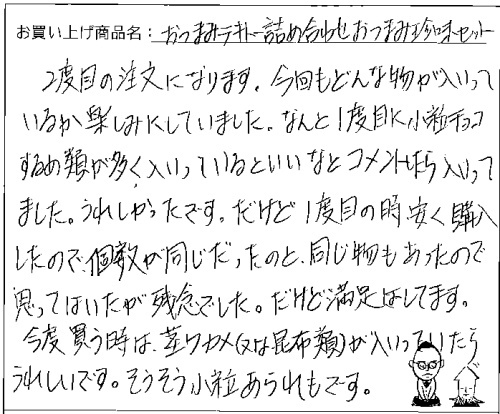 お買い上げ商品名：おつまみテキトー詰め合わせおつまみ珍味セット
2度目の注文になります。今回もどんな物が入いって
いるか楽しみにしていました。なんと1度目に小粒チョコ
するめ類が多く入いっているといいなとコメントしたら入いって
ました。うれしかったです。だけど1度目の時、安く購入
したので、個数が同じだったのと、同じ物もあったので
思ってはいたが残念でした。だけど満足はしてます。
今度買う時は、茎ワカメ(又は昆布類)が入いっていたら
うれしいです。そうそう小粒あられもです。